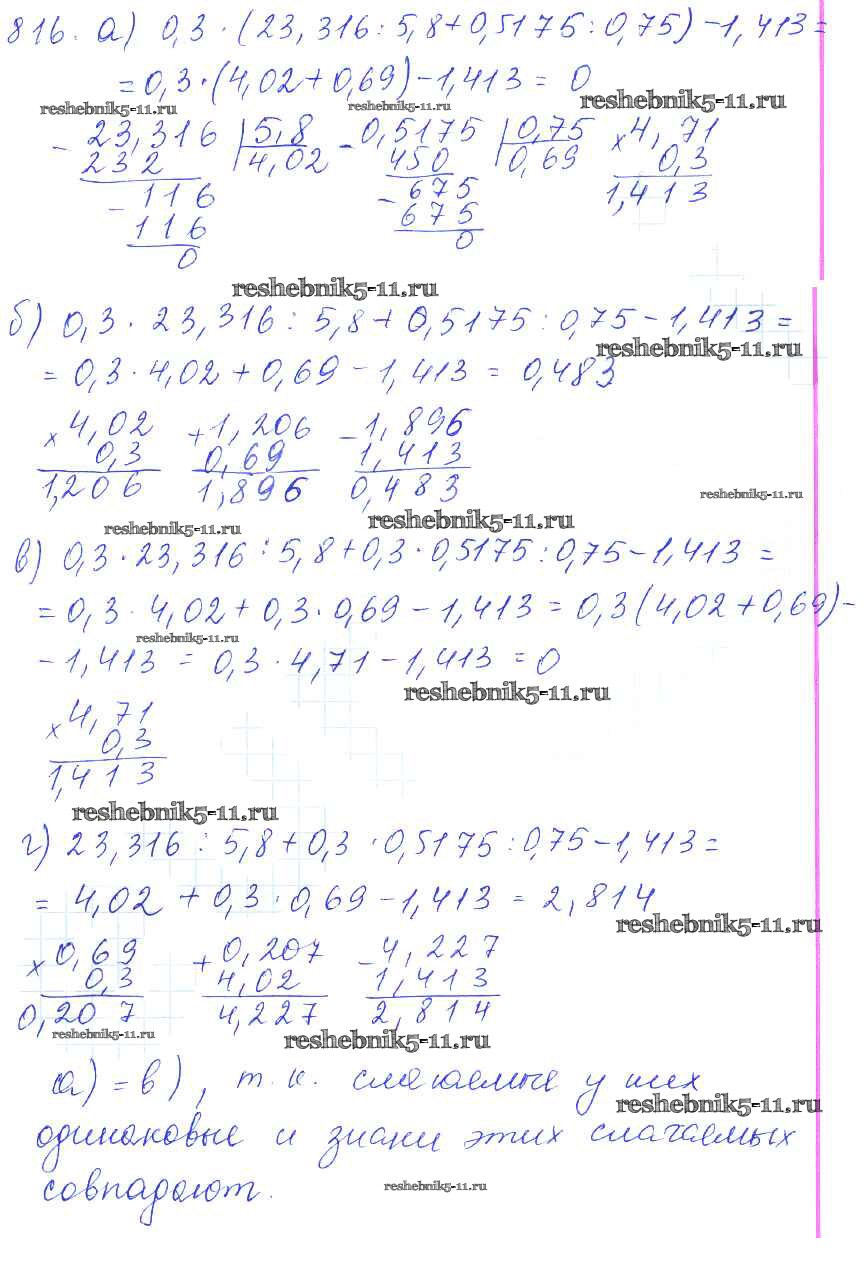 816. а) 0,3 · (23,316 : 5,8 + 0,5175 : 0,75) - 1,413 =
= 0,3 · (4,02 + 0,69) - 1,413 = 0
reshebnik5-11.ru reshebnik5-11.ru reshebnik5-11.ru
- 23,316 | 5,8 - 0,5175 | 0,75 x 4,71
232 4,02 450 0,69 0,3
- 116 - 675 1,413
116 675
0 0
reshebnik5-11.ru
б) 0,3 · 23,316 : 5,8 + 0,5175 : 0,75 - 1,413 =
reshebnik5-11.ru
= 0,3 · 4,02 + 0,69 - 1,413 = 0,483
x 4,02 + 1,206 - 1,896
0,3 0,69 1,413
1,206 1,896 0,483
reshebnik5-11.ru
reshebnik5-11.ru reshebnik5-11.ru
в) 0,3 · 23,316 : 5,8 + 0,3 · 0,5175 : 0,75 - 1,413 =
= 0,3 · 4,02 + 0,3 · 0,69 - 1,413 = 0,3 (4,02 + 0,69) -
reshebnik5-11.ru
- 1,413 = 0,3 · 4,71 - 1,413 = 0
reshebnik5-11.ru
x 4,71
0,3
1,413
reshebnik5-11.ru
г) 23,316 : 5,8 + 0,3 · 0,5175 : 0,75 - 1,413 =
= 4,02 + 0,3 · 0,69 - 1,413 = 2,814
reshebnik5-11.ru
x 0,69 + 0,207 - 4,227
0,3 4,02 1,413
0,207 4,227 2,814
reshebnik5-11.ru reshebnik5-11.ru
а) = в), т.к. слагаемые у них
reshebnik5-11.ru
одинаковые и знаки этих слагаемых
совпадают.
reshebnik5-11.ru